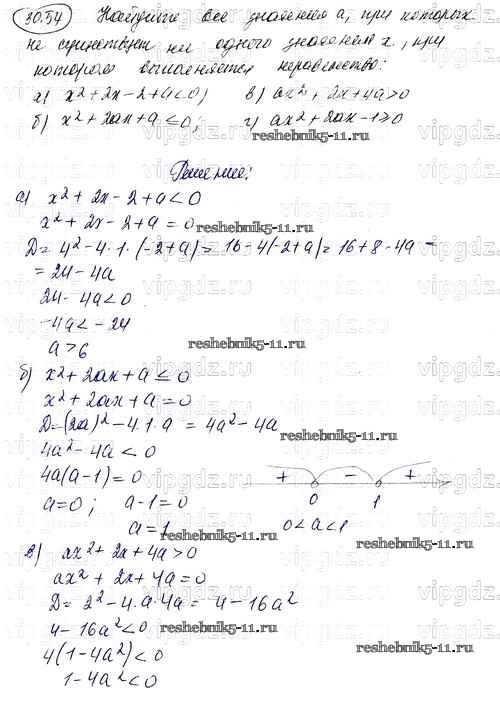 30.54 Найдите все значения a, при которых
не существует ни одного значения x, при
котором выполняется неравенство:
а) x²+2x-2+a<0; в) ax²+2x+4a>0
б) x²+2ax+a≤0; г) ax²+2ax-1≥0
reshebnik5-11.ru
Решение:
а) x²+2x-2+a<0
x²+2x-2+a=0
D=4²-4·1·(-2+a)=16-4(-2+a)=16+8-4a=
=24-4a
24-4a<0
-4a<-24
reshebnik5-11.ru
a>6
б) x²+2ax+a≤0
x²+2ax+a=0
D=(2a)²-4·1·a=4a²-4a
reshebnik5-11.ru
4a²-4a<0
4a(a-1)=0 + - +
a=0; a-1=0 0 1
a=1 0<a<1
reshebnik5-11.ru
в) ax²+2x+4a>0
ax²+2x+4a=0
D=2²-4·a·4a=4-16a²
4-16a²<0 reshebnik5-11.ru
4(1-4a²)<0
1-4a²<0
vipgdz.ru